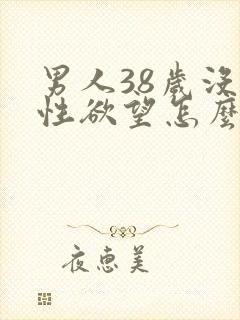 男人38歲沒
性欲望怎麼
夜惠美